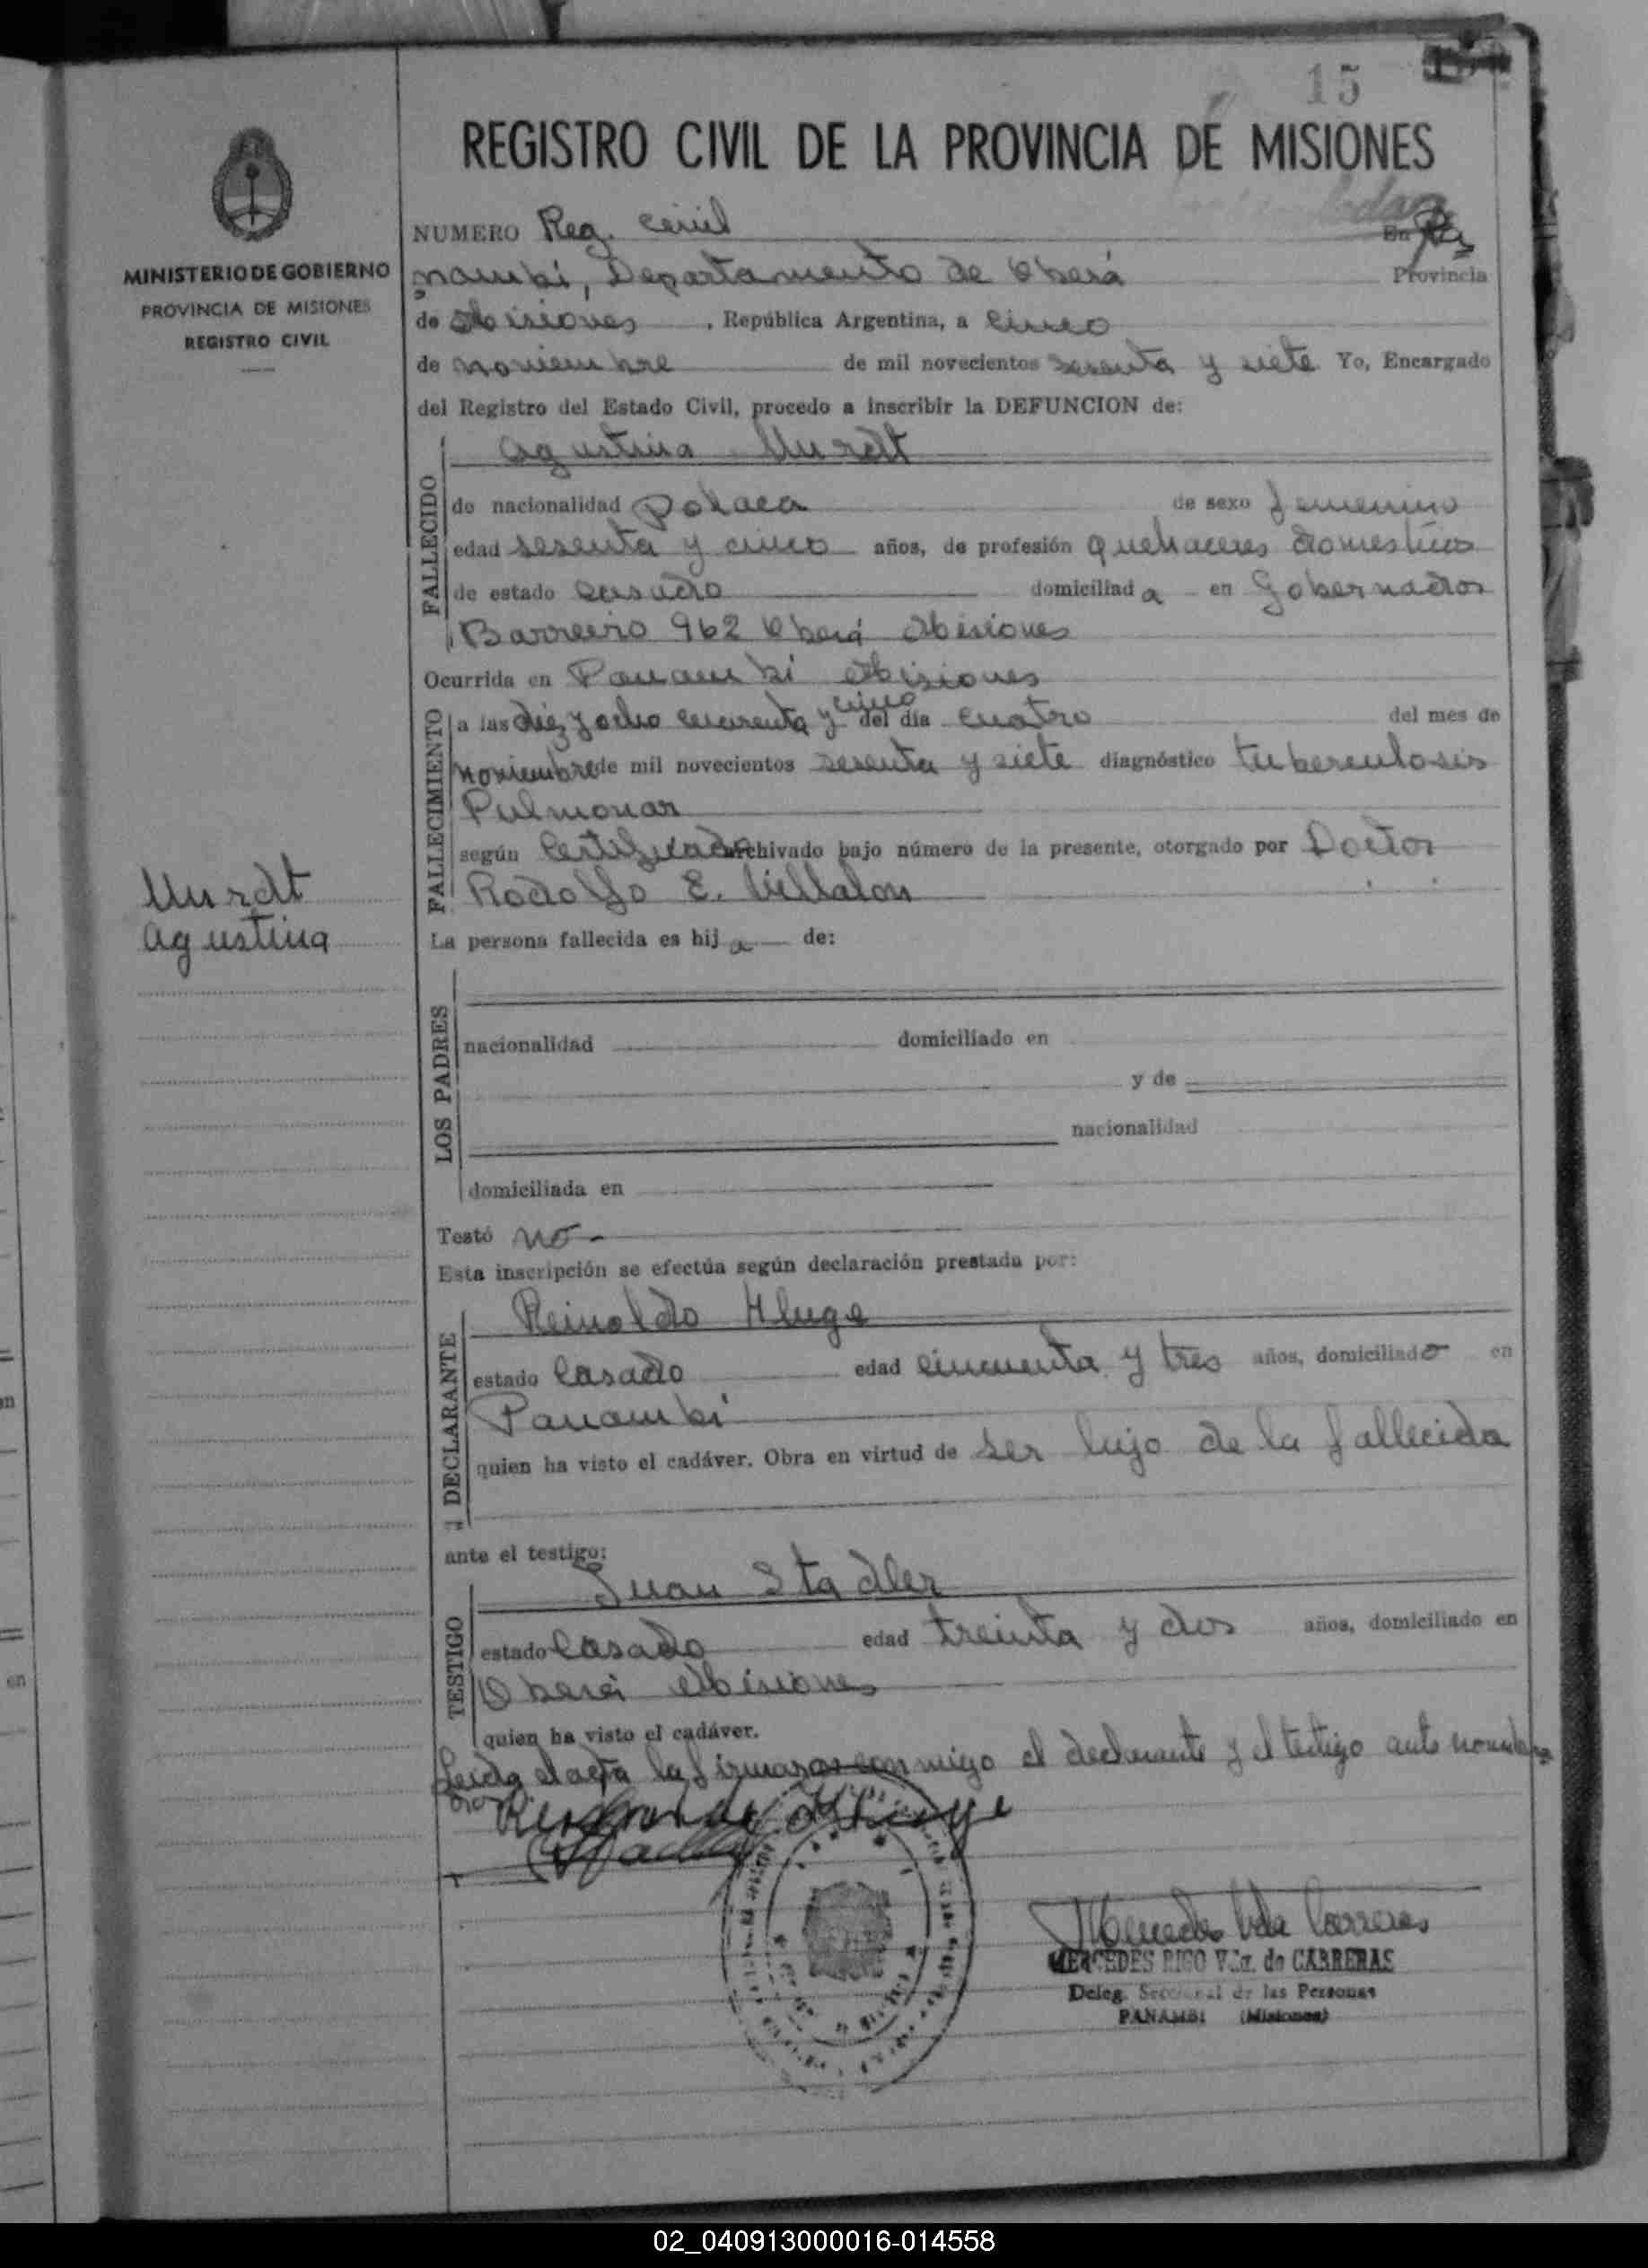 15
REGISTRO CIVIL DE LA PROVINCIA DE MISIONES
MINISTERIO DE GOBIERNO
PROVINCIA DE MISIONES
REGISTRO CIVIL
NUMERO Reg. Civil En Pa
nambi, Departamento de Oberá Provincia
de Misiones, República Argentina, a cinco
de noviembre de mil novecientos sesenta y siete Yo, Encargado
del Registro del Estado Civil, procedo a inscribir la DEFUNCION de:
Agustina
FALLECIDO
de nacionalidad Polaca de sexo femenino
edad sesenta y cinco años, de profesión quehaceres domesticos
de estado casado domiciliad a en Gobernador
Barreiro 962 Oberá Misiones
Ocurrida en Panambi Misiones
FALLECIMIENTO
a las diez y ocho cuarenta y cinco del día cuatro del mes de
noviembre de mil novecientos sesenta y siete diagnóstico tuberculosis
Pulmonar
según Certificado archivado bajo número de la presente, otorgado por Doctor
Rodolfo E. Villalon
Agustina
La persona fallecida es hij a de:
LOS PADRES
nacionalidad domiciliado en
y de
nacionalidad
domiciliada en
Testó no-
Esta inscripción se efectúa según declaración prestada por:
Reinoldo Kluge
DECLARANTE
estado Casado edad cincuenta y tres años, domiciliado en
Panambi
quien ha visto el cadáver. Obra en virtud de ser hijo de la fallecida
ante el testigo:
Juan Stadler
TESTIGO
estado Casado edad treinta y dos años, domiciliado en
Oberá Misiones
quien ha visto el cadáver.
Leida el acta la firmaron conmigo el declarante y el testigo ante nombra
dos
MERCEDES RIGO Vda. de CABRERAS
Deleg. Seccional de las Personas
PANAMBI (Misiones)
02_040913000016-014558